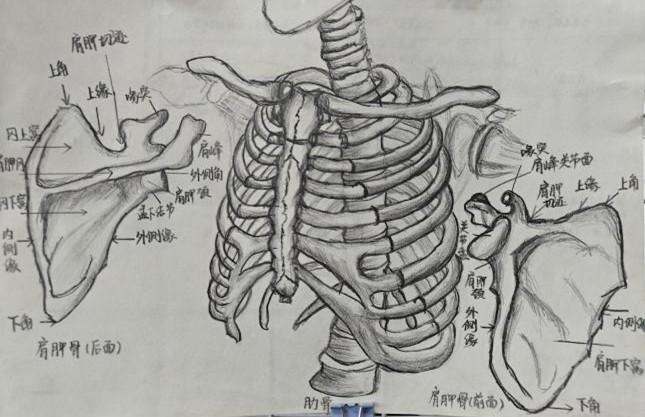 肩胛切迹
上角
上缘
喙突
冈上窝
肩胛冈
冈下窝
内侧缘
下角
肩峰
外侧角
肩胛颈
盂下结节
外侧缘
肩胛骨(后面)
肋骨
喙突
肩峰关节面
肩胛切迹
上缘
上角
肩胛颈
外侧缘
内侧缘
肩胛下窝
下角
肩胛骨(前面)